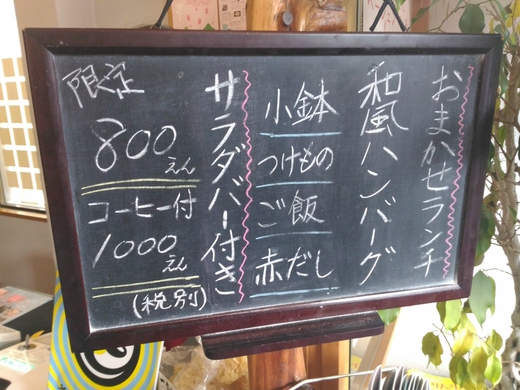 おまかせランチ
和風ハンバーグ
小鉢
つけもの
ご飯
赤だし
サラダバー付き
限定
800えん
コーヒー付
1000えん
(税別)